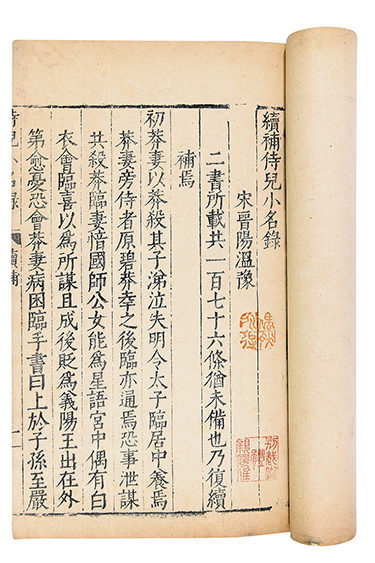 續補侍兒小名錄
宋晉陽溫豫
二書所載共一百七十六條猶未備也乃復續
補焉
初莽妻以莽殺其子涕泣失明令太子臨居中養焉
莽妻旁侍者原碧莽幸之後臨亦通焉恐事泄謀
共殺莽臨妻愔國師公女能為星語宮中偶有白
衣會臨喜以為所謀且成後貶為義陽王出在外
第愈憂恐會莽妻病困臨予書曰上於子孫至嚴
侍兒小名錄 續補 一